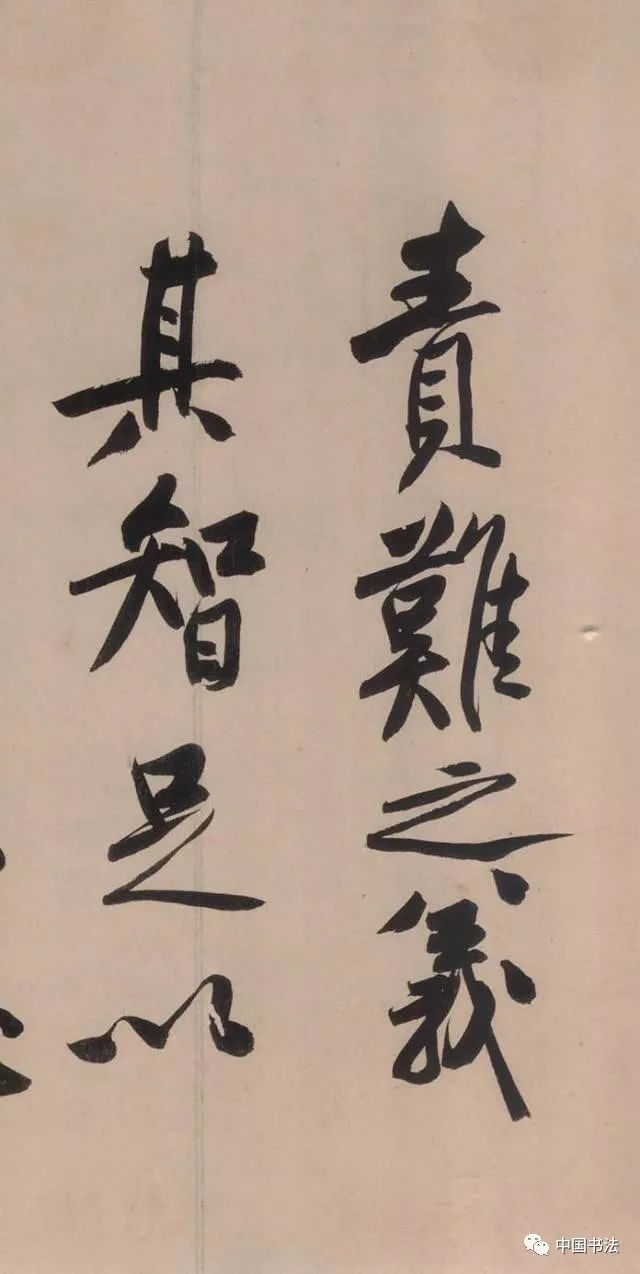 責難之義
其智足以
中国书法